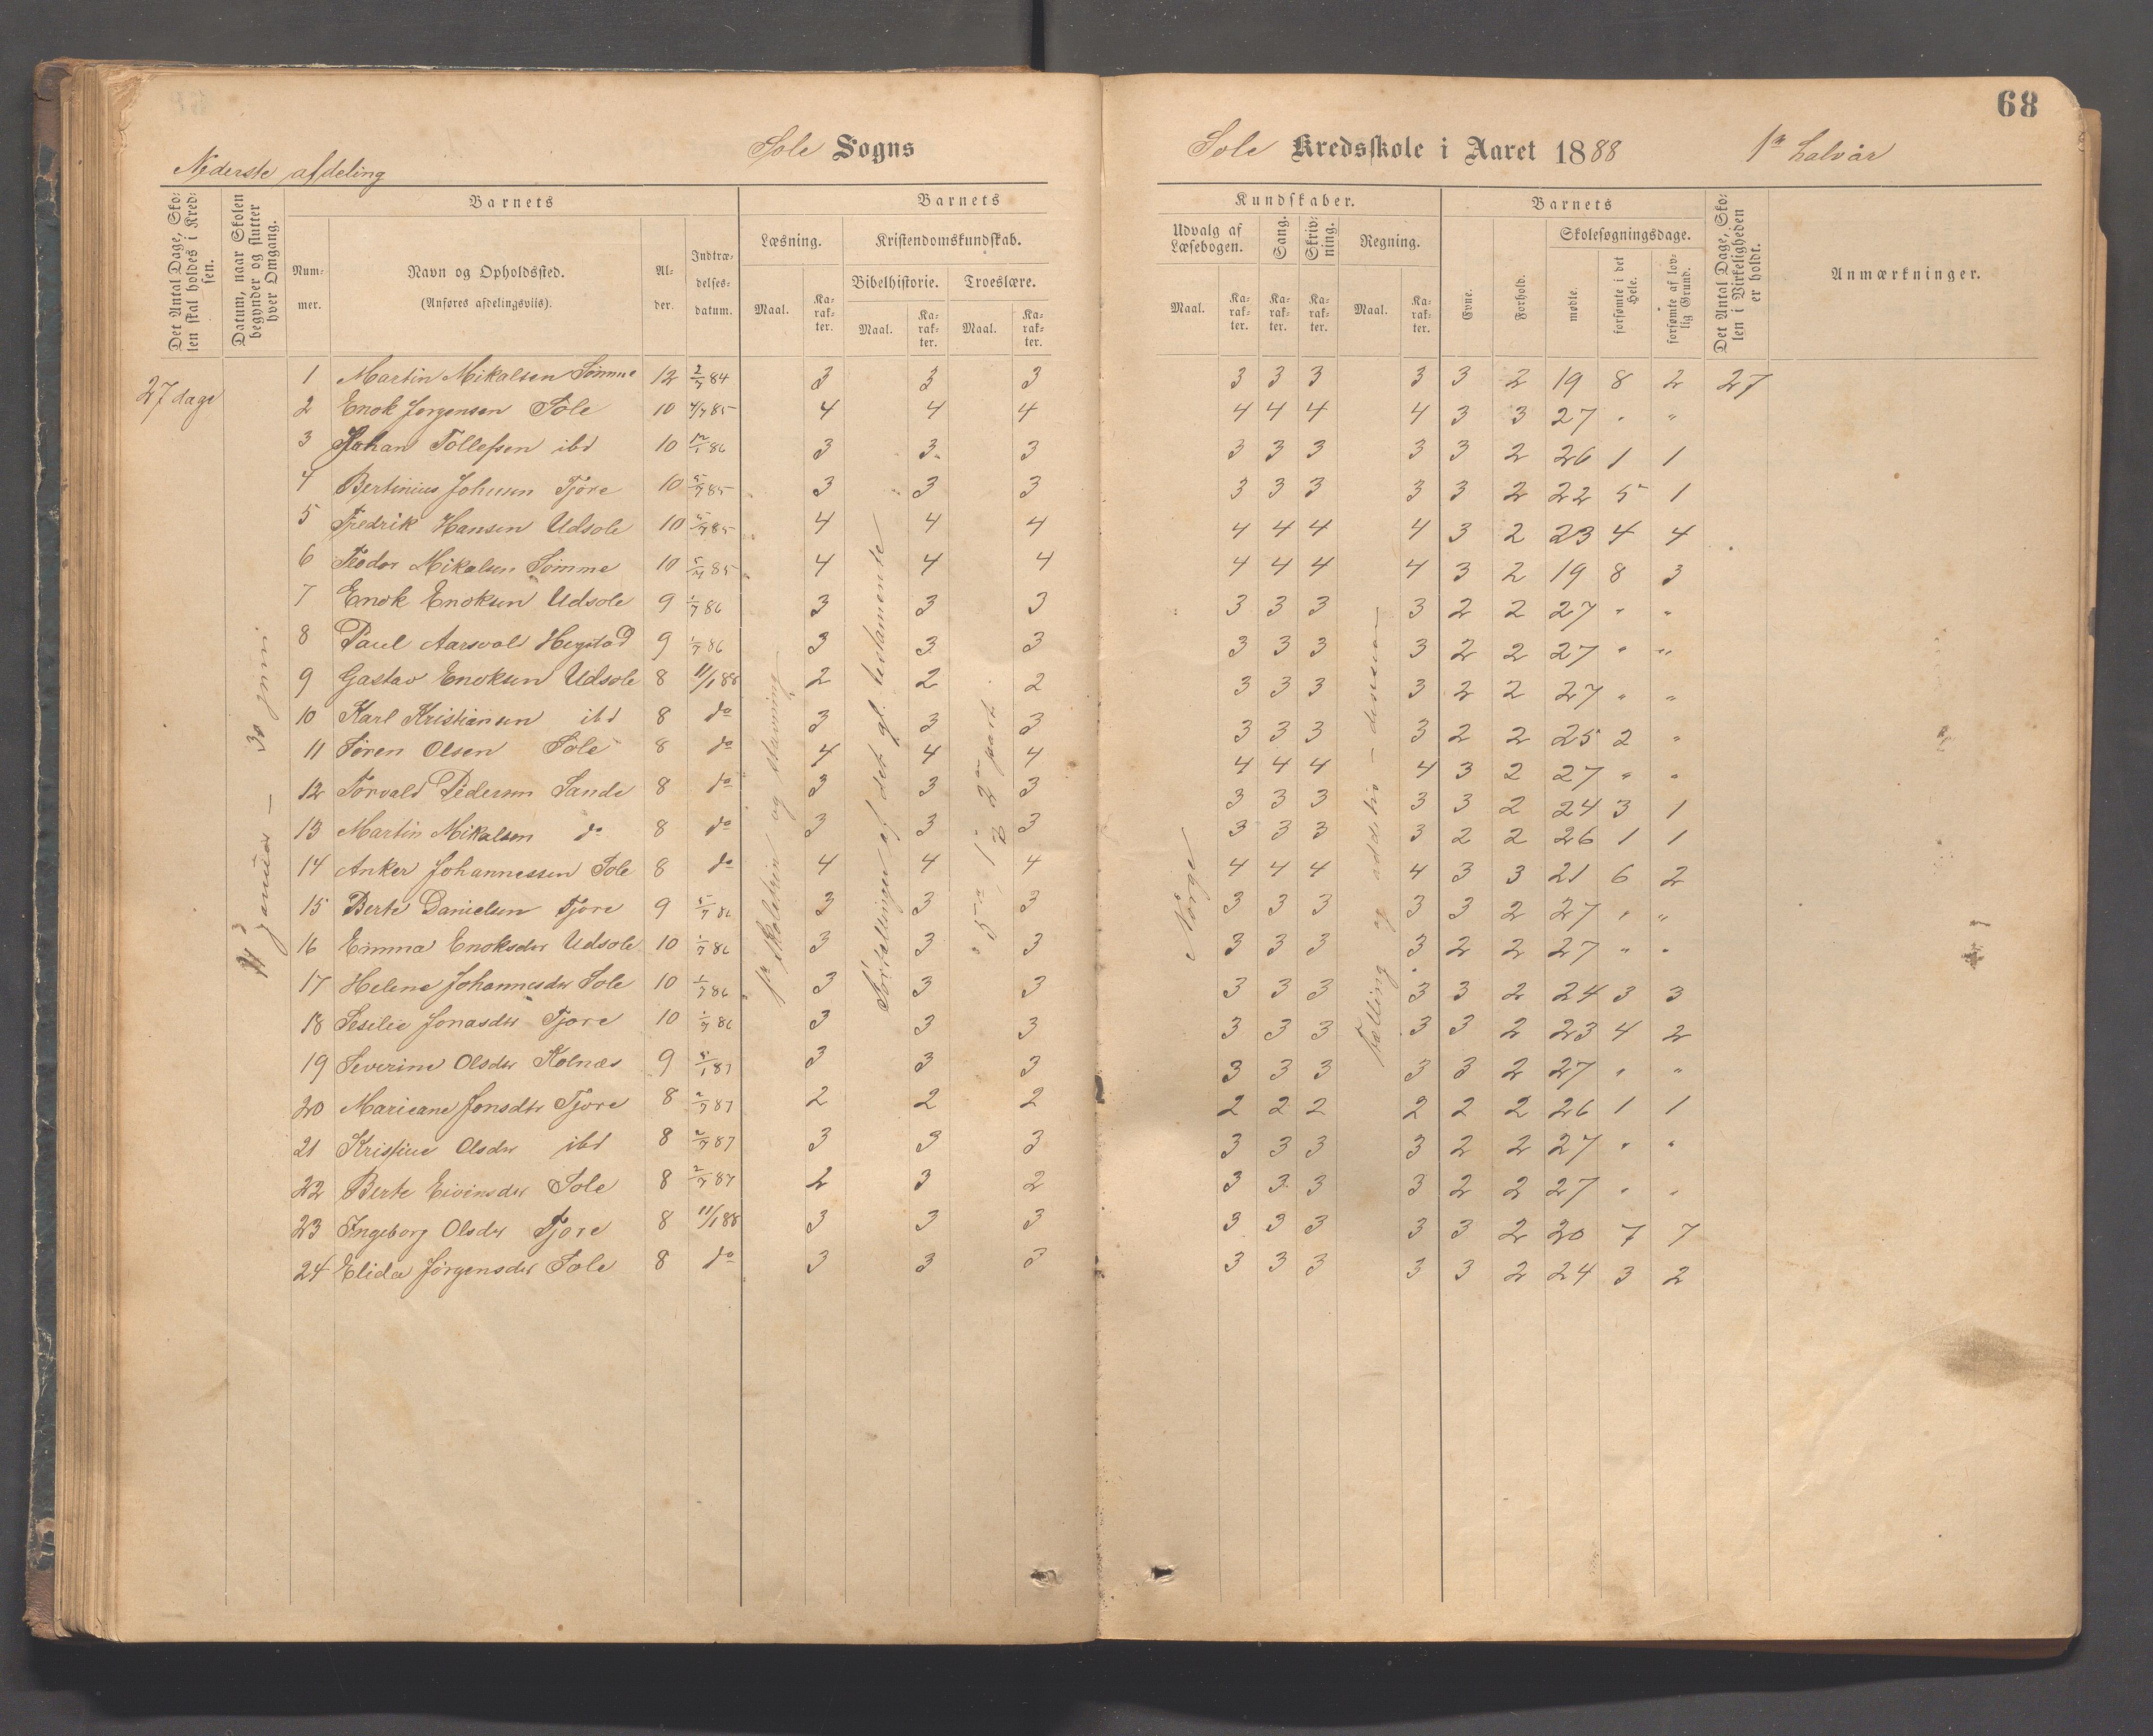 68
Sole Sogns
Sole Kredsskole i Aaret 1888 1ste halvår
Nederste afdeling
Det Antal Dage, Skolen skal holdes i Kredsen.
Datum, naar Skolen begynder og slutter hver Omgang.
Barnets
Nummer.
Navn og Opholdssted.
(Anføres afdelingsviis).
Alder.
Indtrædelsesdatum.
Barnets
Læsning.
Maal.
Karakter.
Kristendomskundskab.
Bibelhistorie.
Maal.
Karakter.
Troeslære.
Maal.
Karakter.
Kundskaber.
Udvalg af Læsebogen.
Maal.
Karakter.
Sang.
Karakter.
Skrivning.
Karakter.
Regning.
Maal.
Karakter.
Barnets
Evne.
Forhold.
Skolesøgningsdage.
mødte.
forsømte i det Hele.
forsømte af lovlig Grund.
Det Antal Dage, Skolen i Virkeligheden er holdt.
Anmærkninger.
27 dage
januar — 30 juni
skoletrin og stavning
Fortellinger af det gl. testamente
5te, 1 & 2den part
Norge
Tælling og addition - division
1 Martin Mikalsen Sømme 12 2/7 84 3 3 3 3 3 3 3 3 2 19 8 2 27
2 Enok Jørgensen Sole 10 4/7 85 4 4 4 4 4 4 4 3 3 27 " "
3 Johan Tollefsen ibd 10 12/1 86 3 3 3 3 3 3 3 3 2 26 1 1
4 Bertinius Johnsen Tjore 10 5/7 85 3 3 3 3 3 3 3 3 2 22 5 1
5 Fredrik Hansen Udsole 10 5/7 85 4 4 4 4 4 4 4 3 2 23 4 4
6 Teodor Mikalsen Sømme 10 5/7 85 4 4 4 4 4 4 4 3 2 19 8 3
7 Enok Enoksen Udsole 9 1/7 86 3 3 3 3 3 3 3 2 2 27 " "
8 Paul Aarsvold Hegstad 9 1/7 86 3 3 3 3 3 3 3 2 2 27 " "
9 Gustav Enoksen Udsole 8 11/1 88 2 2 2 3 3 3 3 2 2 27 " "
10 Karl Kristiansen ibd 8 do 3 3 3 3 3 3 3 2 2 25 2 "
11 Søren Olsen Sole 8 do 4 4 4 4 4 4 4 3 2 27 " "
12 Torvald Pedersen Sande 8 do 3 3 3 3 3 3 3 3 2 24 3 1
13 Martin Mikalsen do 8 do 3 3 3 3 3 3 3 2 2 26 1 1
14 Anker Johannessen Sole 8 do 4 4 4 4 4 4 4 3 3 21 6 2
15 Berte Danielsen Tjore 9 5/7 86 3 3 3 3 3 3 3 3 2 27 " "
16 Emma Enoksdtr Udsole 10 1/7 86 3 3 3 3 3 3 3 2 2 27 " "
17 Helene Johannesdtr Sole 10 1/7 86 3 3 3 3 3 3 3 3 2 24 3 3
18 Sesilie Jonasdtr Tjore 10 1/7 86 3 3 3 3 3 3 3 3 2 23 4 2
19 Severine Olsdtr Kolnæs 9 5/1 87 3 3 3 3 3 3 3 3 2 27 " "
20 Mariane Jonsdtr Tjore 8 2/7 87 2 2 2 2 2 2 2 2 2 26 1 1
21 Kristine Olsdtr ibd 8 2/7 87 3 3 3 3 3 3 3 2 2 27 " "
22 Berte Eivindsdtr Sole 8 2/7 87 2 3 2 3 3 3 3 2 2 27 " "
23 Ingeborg Olsdtr Tjore 8 11/1 88 3 3 3 3 3 3 3 3 2 20 7 7
24 Elida Jørgensdtr Sole 8 do 3 3 3 3 3 3 3 3 2 24 3 2